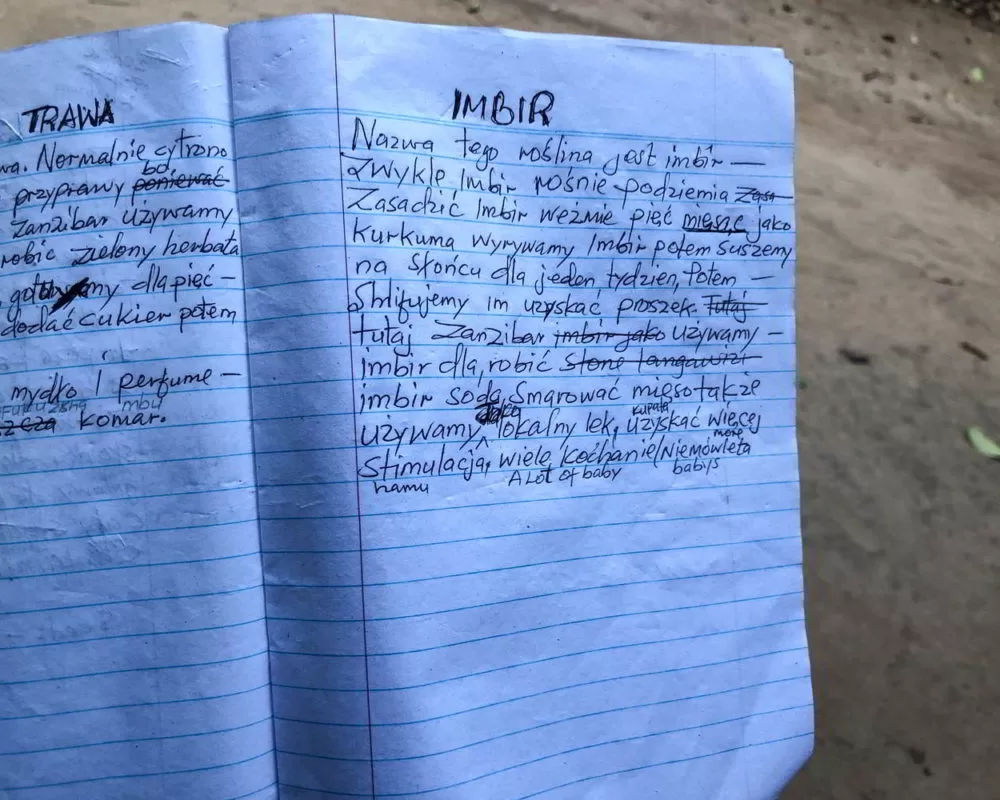 TRAWA
wa. Normalnie cytrono
bo,
przyprawy poniewać
Zanzibar używamy
robić zielony herbata
gotujemy dla pięć –
dodać cukier potem
mydło i perfume –
mbu
komar.
IMBIR
Nazwa tego roślina jest imbir —
Zwykle Imbir rośnie podziemia Zasa
Zasadzić Imbir weźmie pięć miesąc jako
kurkuma wyrywamy Imbir potem suszemy
na słońcu dla jeden tydzien, Potem —
Shlifujemy im uzyskać proszek. Tutaj
tutaj Zanzibar imbir jako używamy –
imbir dla, robić Stone tangawizi
imbir soda, Smarować mięso także
używamy jako lokalny lek, uzyskać więcej
kupata more
Stimulacja, wiele kochanie/Niemówleta
hamu A Lot of baby babys